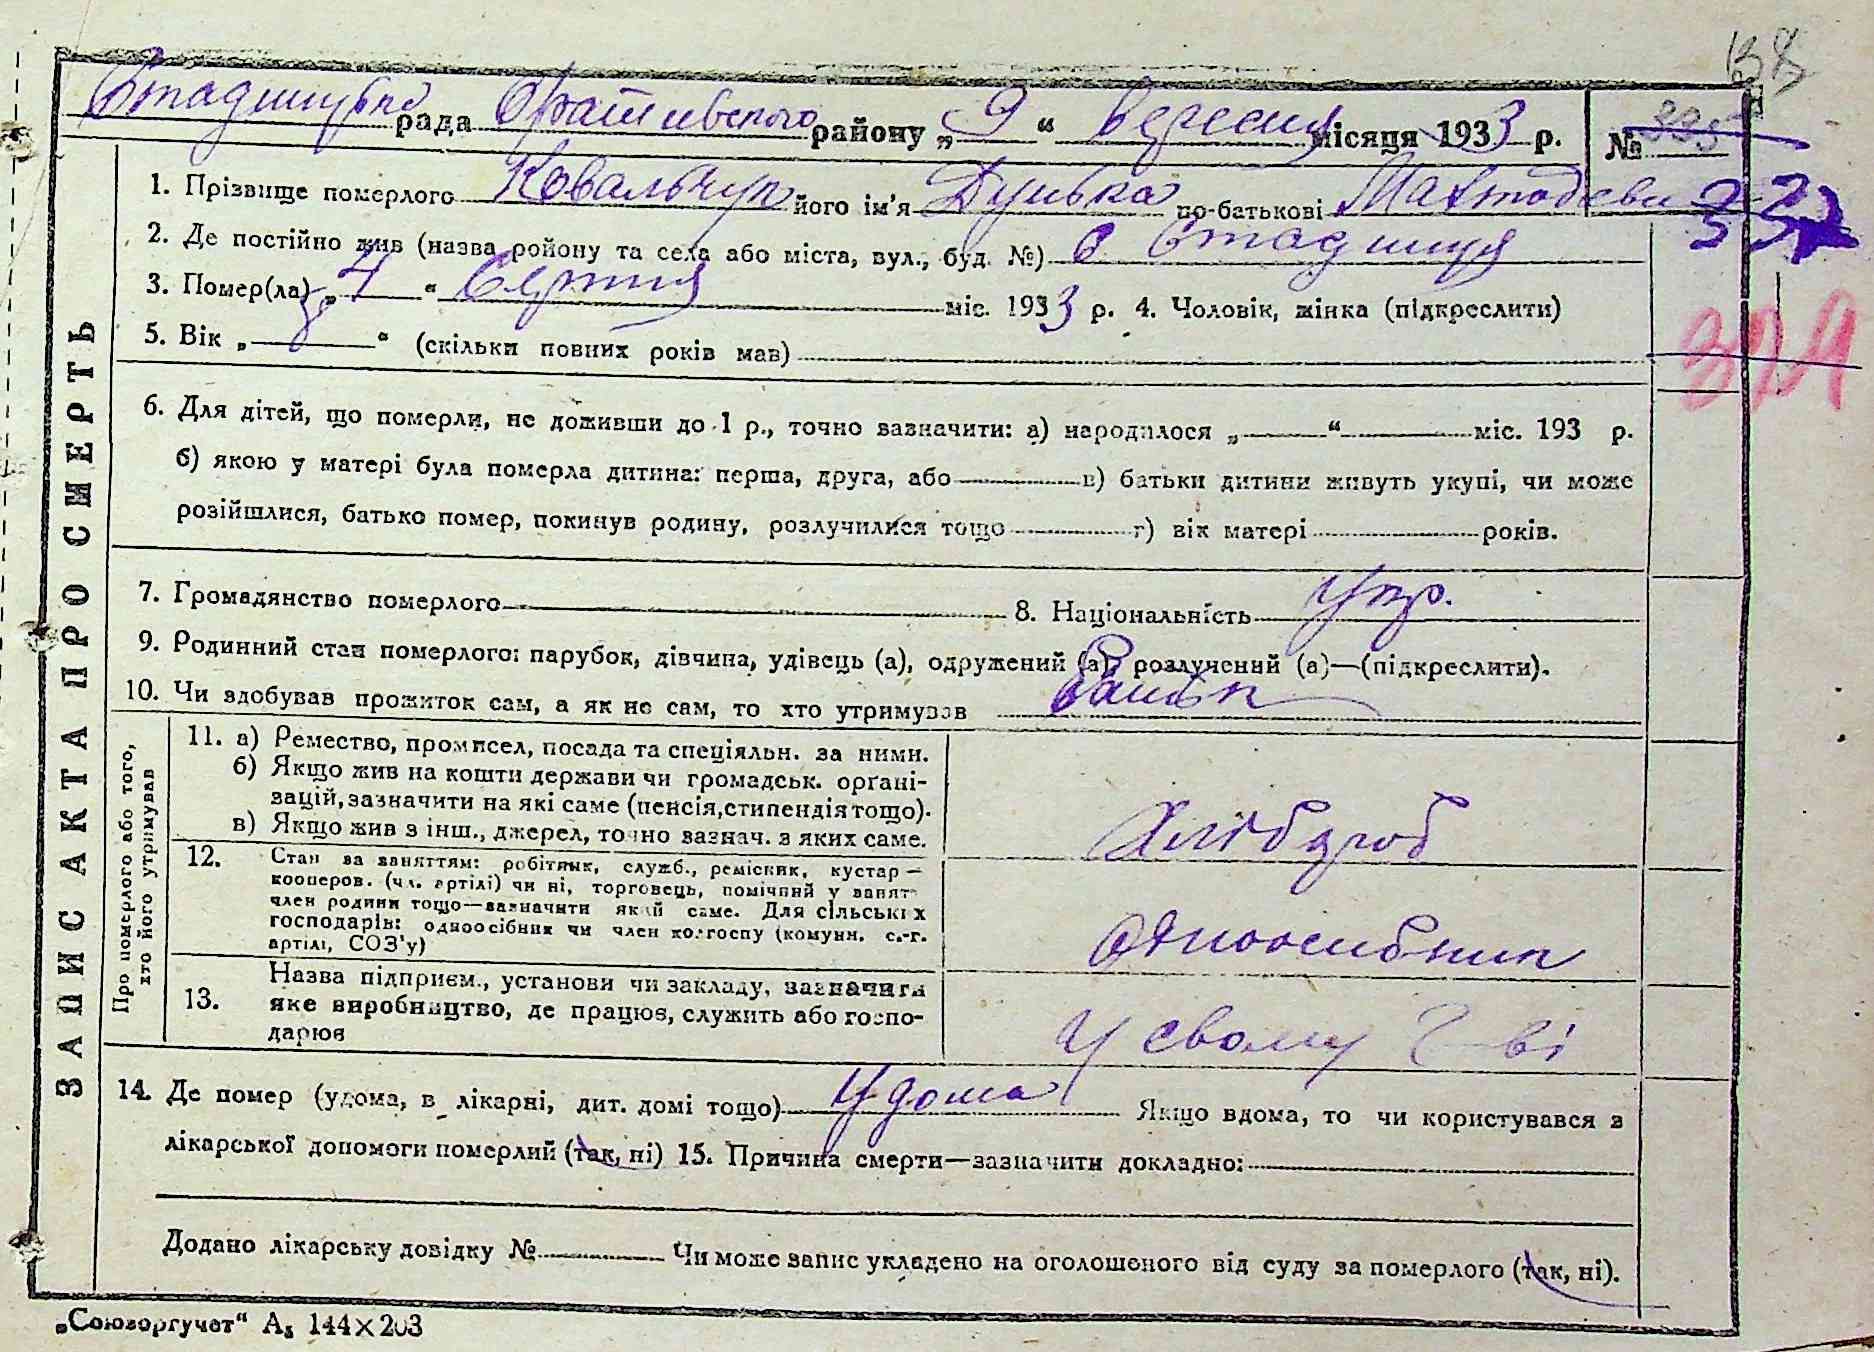 138
Стадницька рада Оратівського району „9“ вересня місяця 1933 р. № 395
1. Прізвище померлого Ковальчук його ім'я Дунька по-батькові
332
2. Де постійно жив (назва ройону та села або міста, вул., буд. №) с Стадниця
3. Помер(ла) „4“ Серпня міс. 1933 р. 4. Чоловік, жінка (підкреслити)
5. Вік „8“ (скільки повних років мав)
6. Для дітей, що померли, не доживши до 1 р., точно зазначити: а) народилося „ “ міс. 193 р.
б) якою у матері була померла дитина: перша, друга, або в) батьки дитини живуть укупі, чи може
розійшлися, батько помер, покинув родину, розлучилися тощо г) вік матері років.
7. Громадянство померлого 8. Національність Укр.
9. Родинний стан померлого: парубок, дівчина, удівець (а), одружений (а), розлучений (а)—(підкреслити).
10. Чи здобував прожиток сам, а як не сам, то хто утримував батьк
ЗАПИС АКТА ПРО СМЕРТЬ
Про померлого або того, хто його утримував
11. а) Ремество, промисел, посада та спеціяльн. за ними.
б) Якщо жив на кошти держави чи громадськ. орґані-
зацій, зазначити на які саме (пенсія, стипендія тощо).
в) Якщо жив з інш., джерел, точно зазнач. з яких саме.
Хлібороб
12. Стан за заняттям: робітник, служб., ремісник, кустар—
кооперов. (чл. артілі) чи ні, торговець, помічний у занят.
член родини тощо—зазначити який саме. Для сільських
господарів: одноосібник чи член колгоспу (комуни, с.-г.
артілі, СОЗ'у)
Одноосибник
13. Назва підприєм., установи чи закладу, зазначити
яке виробництво, де працює, служить або госпо-
дарює
У свому г-ві
14. Де помер (удома, в лікарні, дит. домі тощо) Удома Якщо вдома, то чи користувався з
лікарської допомоги померлий (так, ні) 15. Причина смерти—зазначити докладно:
Додано лікарську довідку № Чи може запис укладено на оголошеного від суду за померлого (так, ні).
„Союзоргучет“ А₅ 144×203